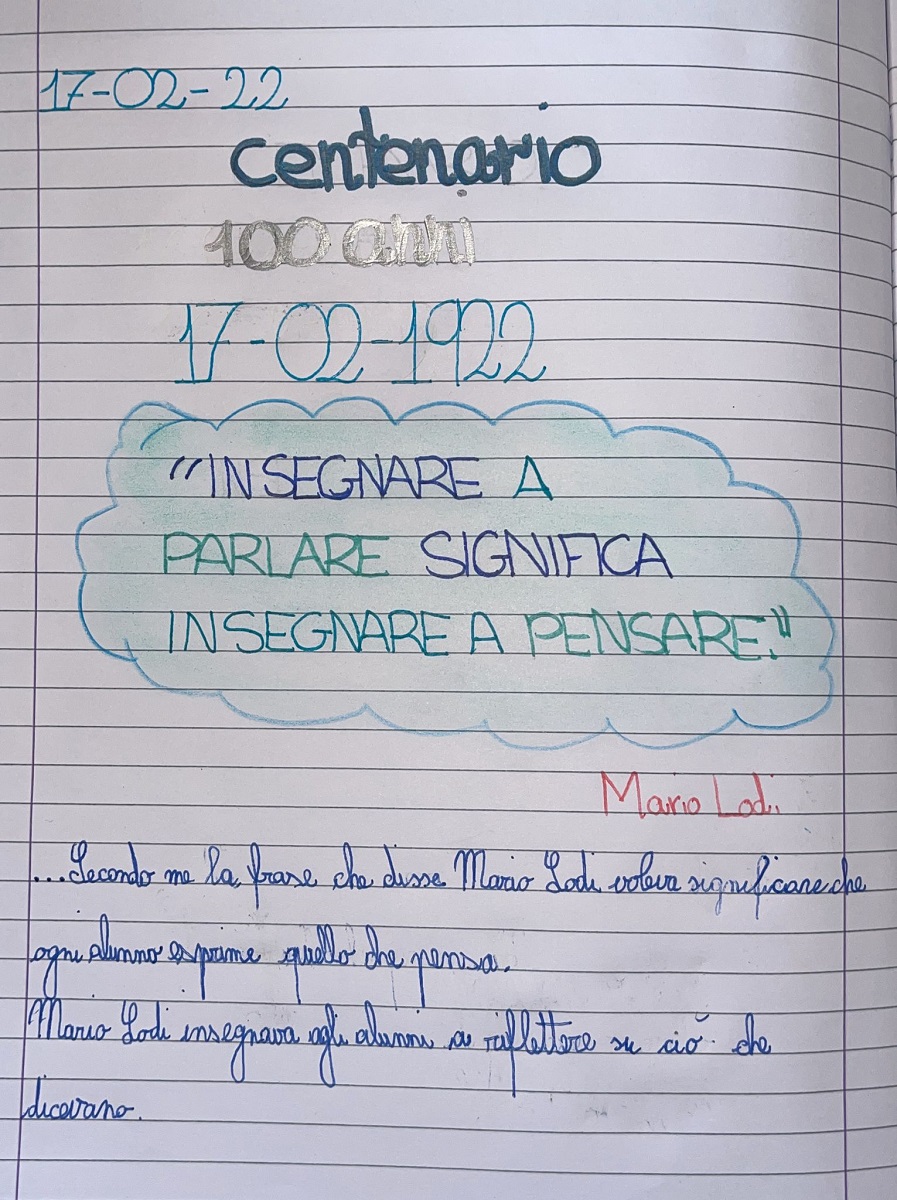 17-02-22
centenario
100 anni
17-02-1922
"INSEGNARE A
PARLARE SIGNIFICA
INSEGNARE A PENSARE."
Mario Lodi.
...Secondo me la frase che disse Mario Lodi voleva significare che
ogni alunno esprime quello che pensa.
Mario Lodi insegnava agli alunni a riflettere su ciò che
dicevano.